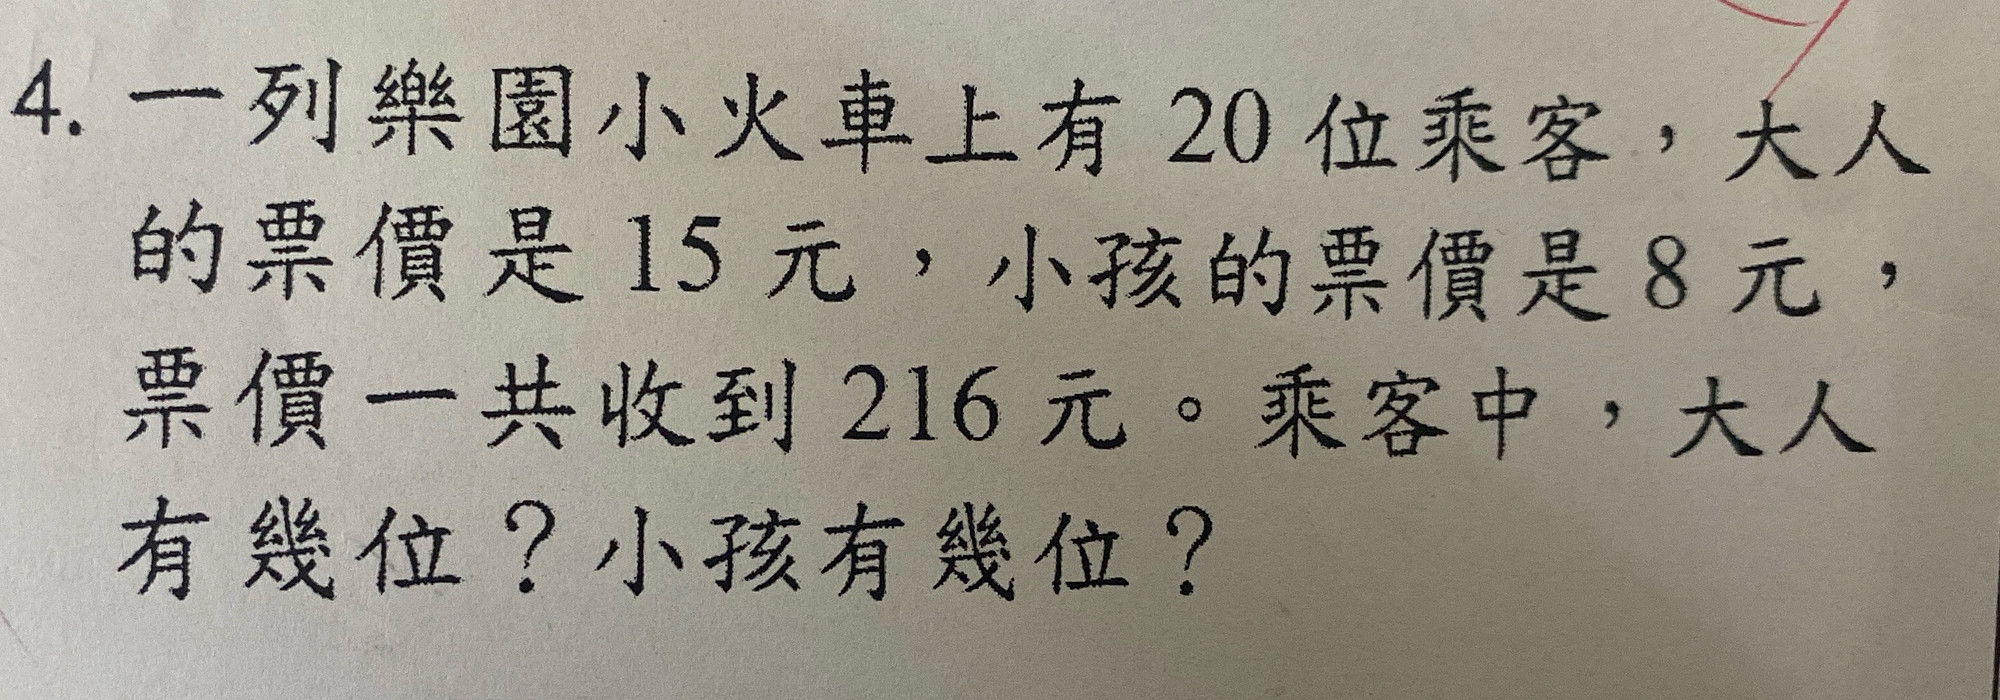 4. 一列樂園小火車上有 20 位乘客，大人
的票價是 15 元，小孩的票價是 8 元，
票價一共收到 216 元。乘客中，大人
有幾位？小孩有幾位？